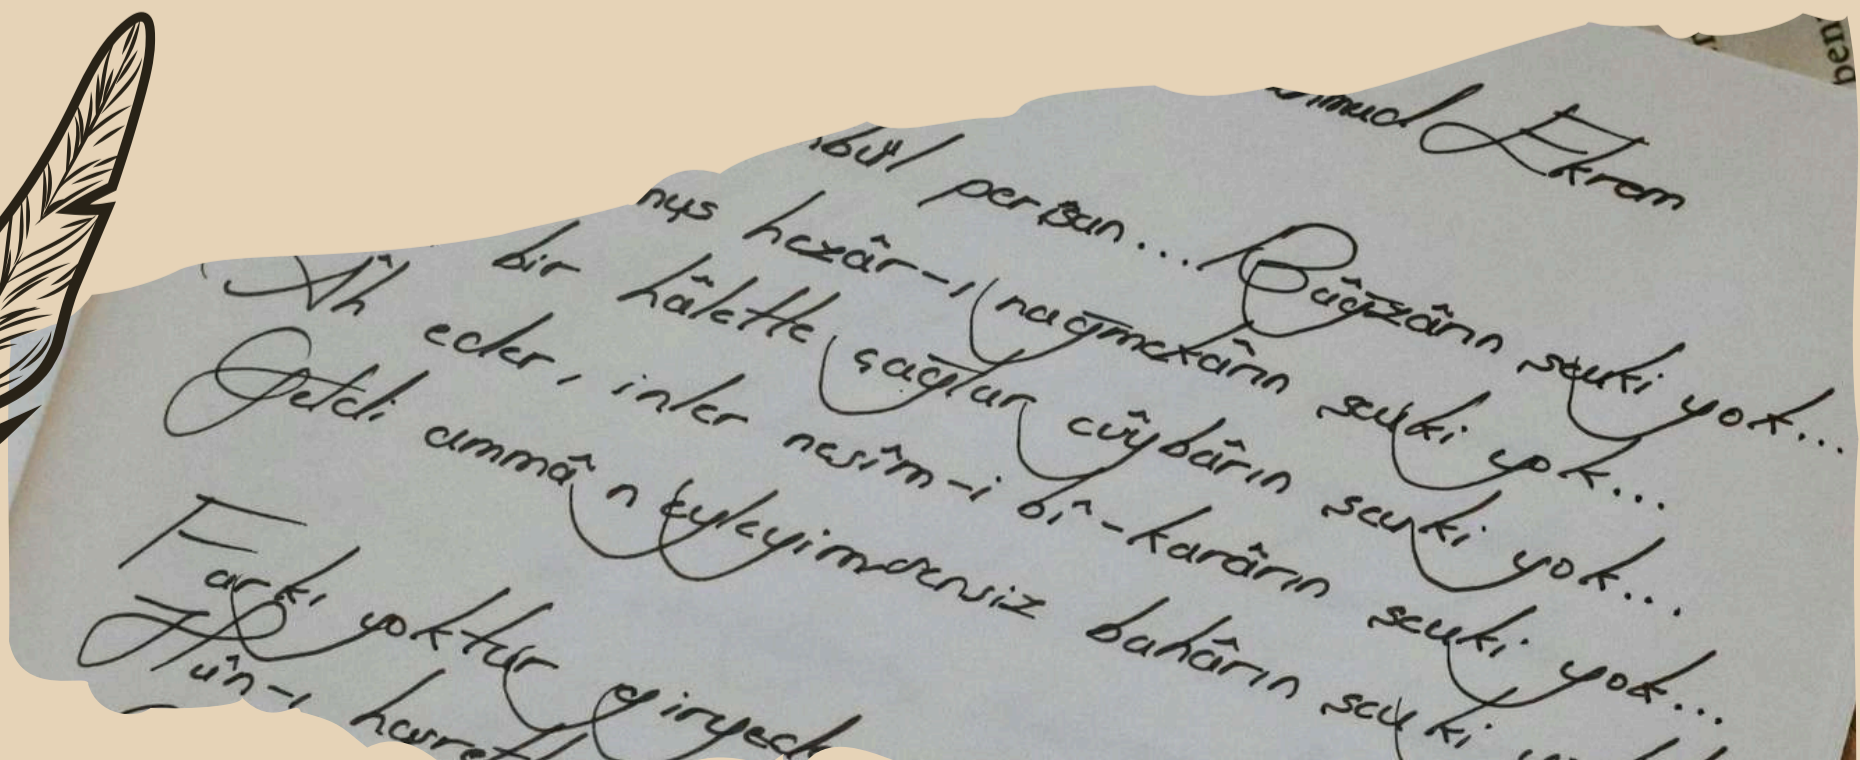 hmud Ekrem
bül perîşan... Bâğzârın şevki yok...
muş hezâr-ı nağmekârın şevki yok...
bir hâletle çağlar cûybârın şevki yok...
Âh eder, inler nesîm-i bî-karârın şevki yok...
Geldi ammâ n'eyleyim sensiz bahârın şevki
Farkı yoktur giryed
Hûn-ı hasretl